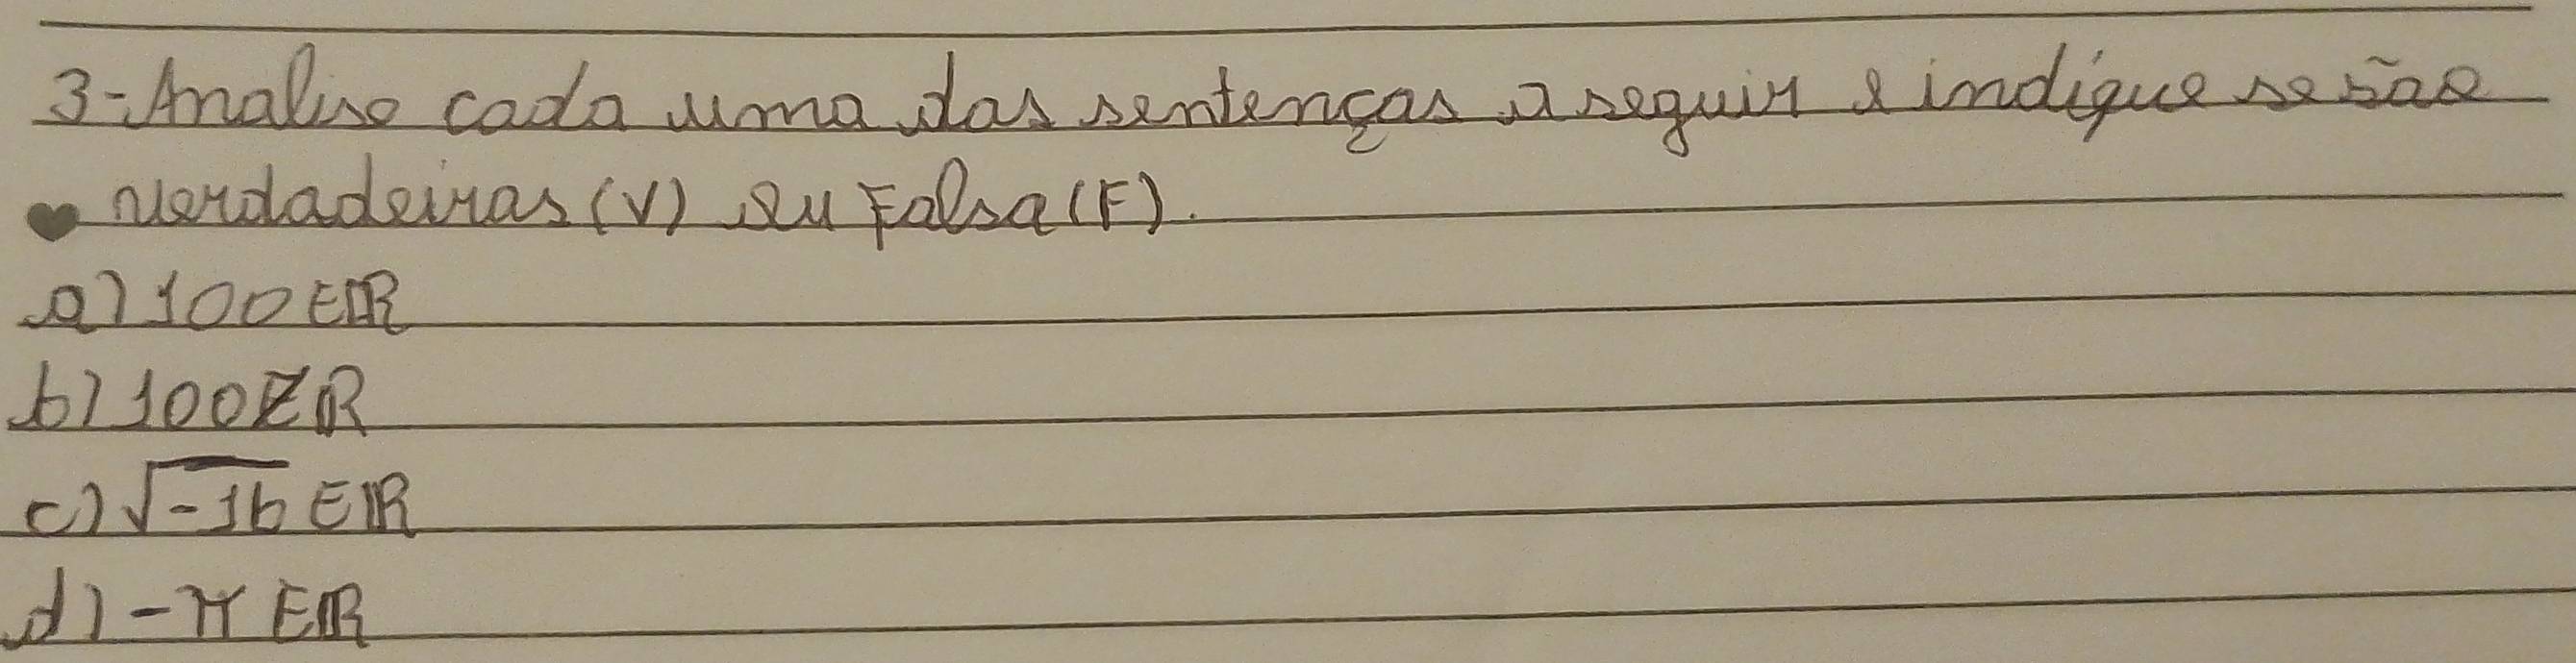 3-Analise cada uma das sentenças a seguir e indique se são
♥ verdadeiras (V) ou Falsa (F).
a) 100 ∈ ℝ
b) 100 ∉ ℝ
c) √-16 ∈ ℝ
d) -π ∈ ℝ